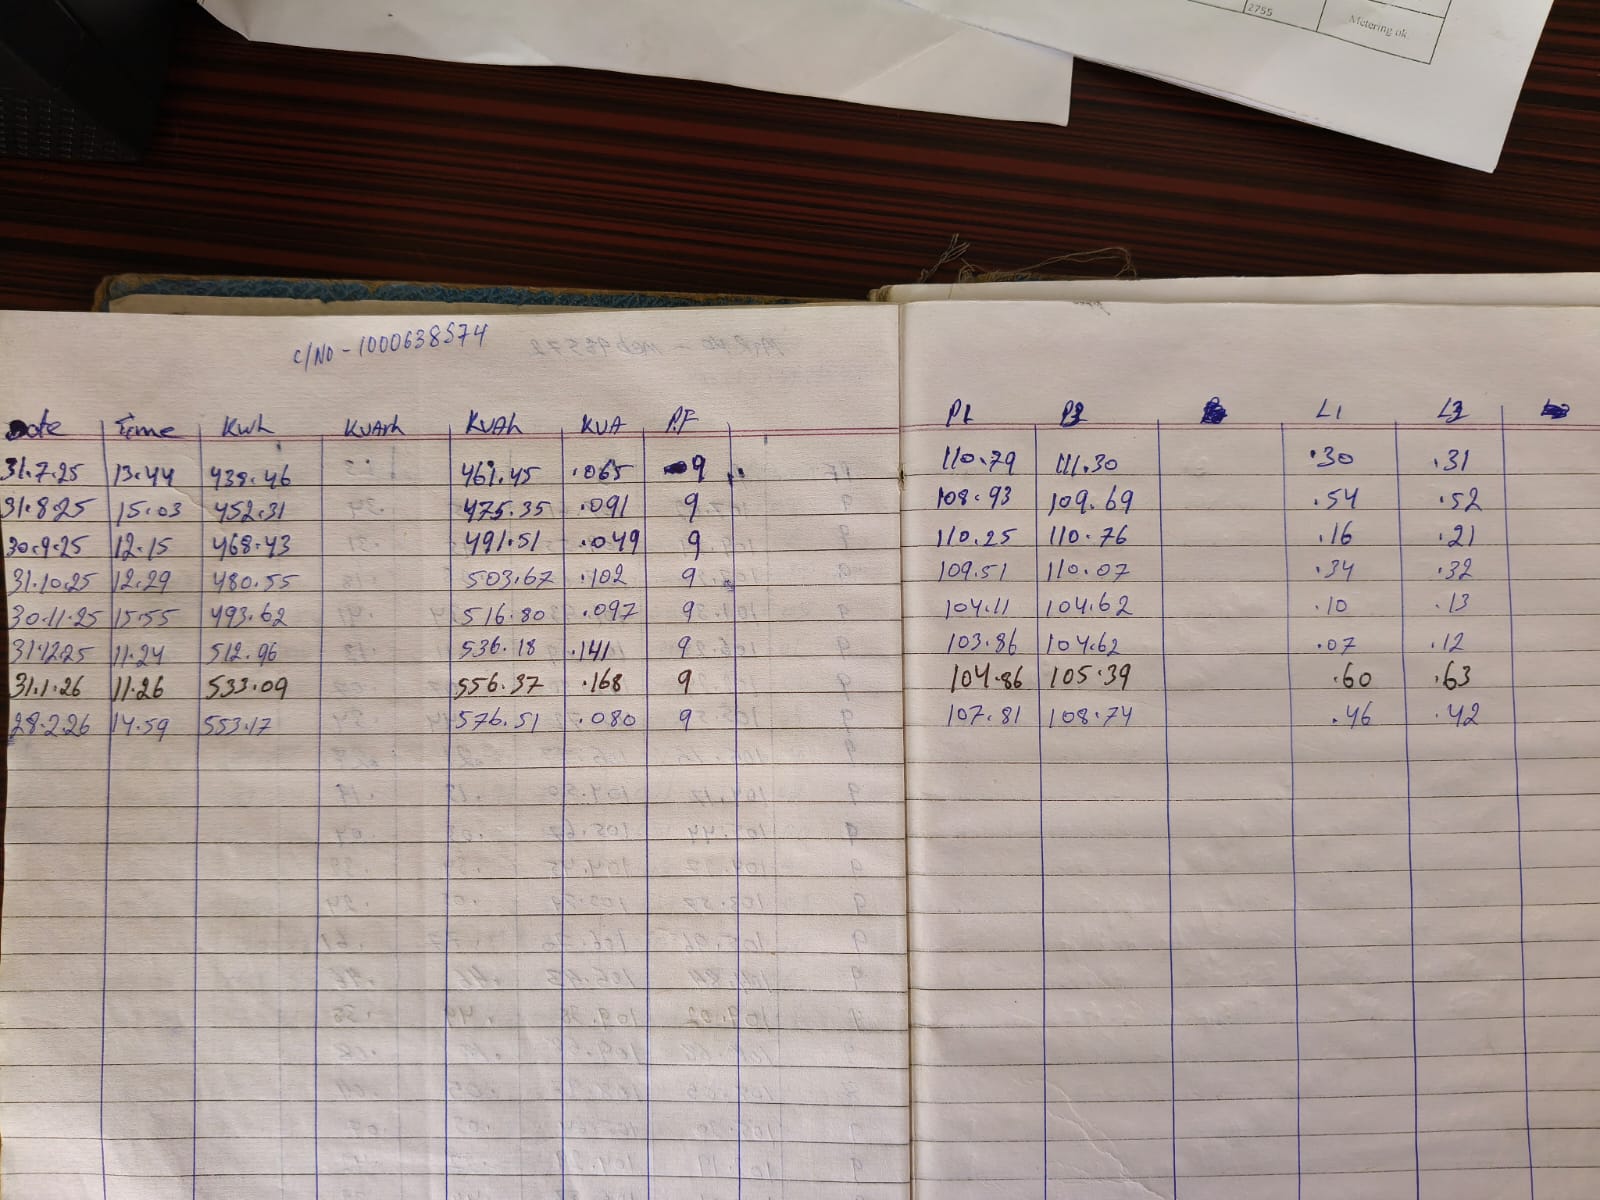 2755
Metering ok
C/No - 1000638574
Date Time Kwh KVArh KVAh KVA P.F P1 P3 L1 L3
31.7.25 13.44 438.46 461.45 .065 9 110.79 111.30 .30 .31
31.8.25 15.03 452.31 475.35 .091 9 108.93 109.69 .54 .52
30.9.25 12.15 468.43 491.51 .049 9 110.25 110.76 .16 .21
31.10.25 12.29 480.55 503.67 .102 9 109.51 110.07 .34 .32
30.11.25 15.55 493.62 516.80 .097 9 104.11 104.62 .10 .13
31.12.25 11.24 512.96 536.18 .141 9 103.86 104.62 .07 .12
31.1.26 11.26 533.09 556.37 .168 9 104.86 105.39 .60 .63
28.2.26 14.59 553.17 576.51 .080 9 107.81 108.74 .46 .42